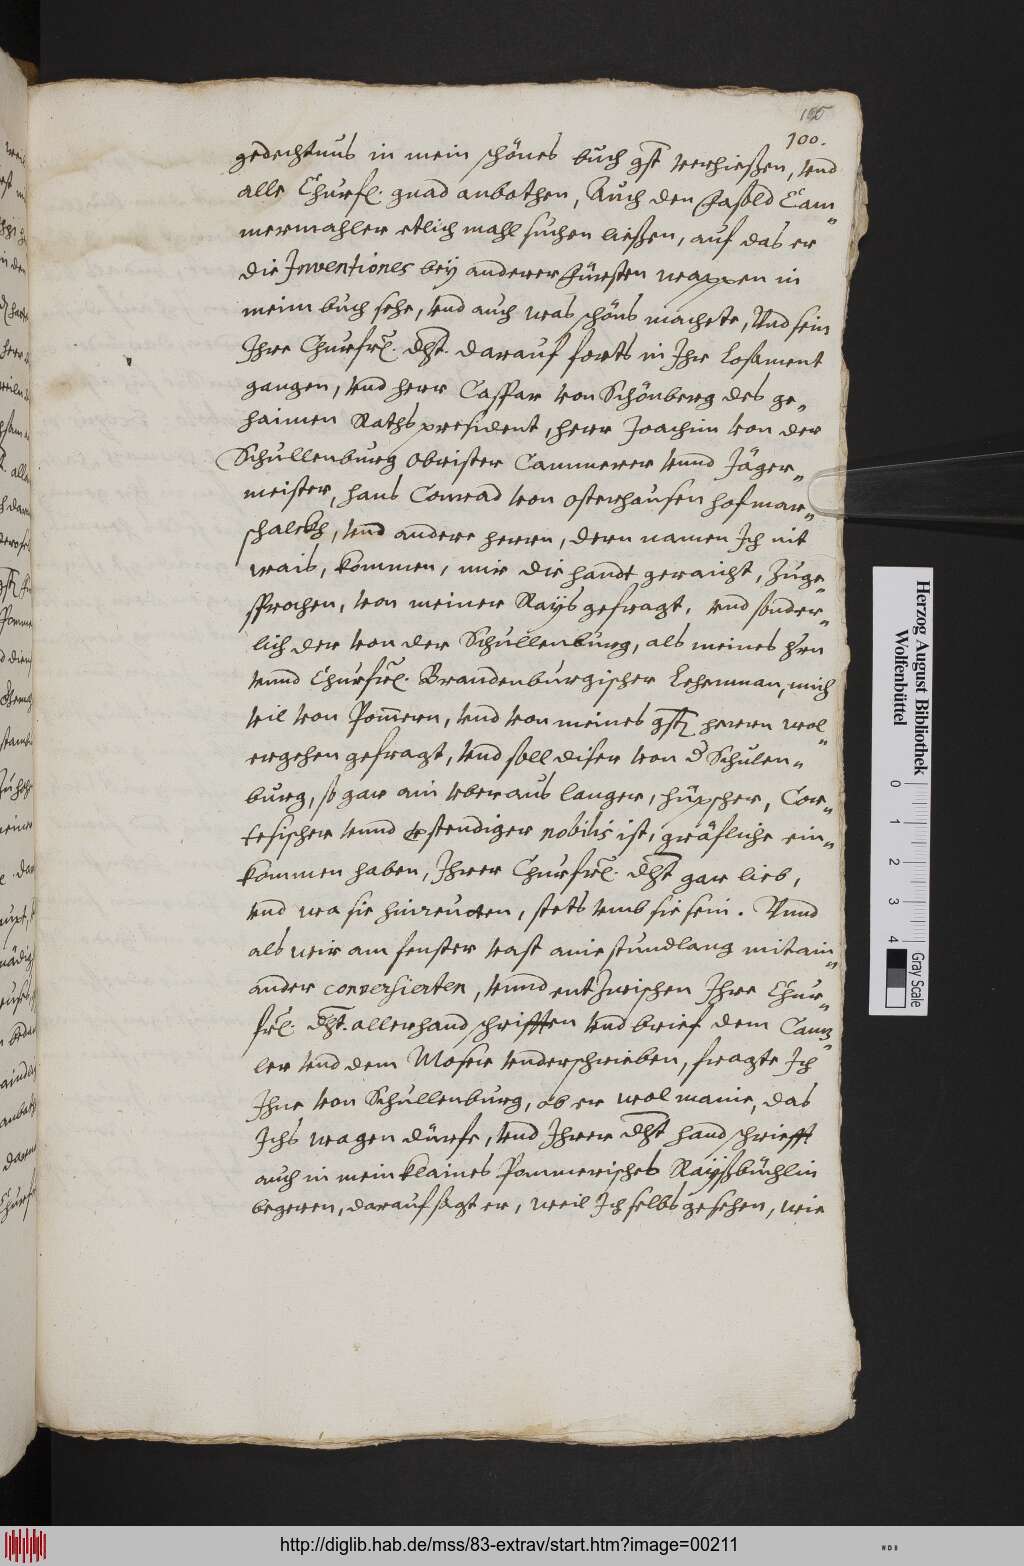 105
100.
gedechtnus in mein schönes buch gst verhießen, vnd
alle Churfl. gnad anbothen, Auch den Fasold Cam„
mermahler etlich mahl suchen ließen, auf das er
die Inventiones bey anderer Fürsten wappen in
meim buch sehe, vnd auch was schöns machete, Vnd sein
Ihre Churfrl. Dht. darauf forts in Ihr Losament
gangen, vnd herr Caspar von Schönberg des ge„
haimen Raths president, herr Joachim von der
Schullenburg Obrister Cammerer vnnd Jäger„
meister, hans Conrad von Osterhausen hofmar„
schalckh, vnd andere herrn, dern namen Ich nit
wais, kommen, mir die handt geraicht, Zuge„
sprochen, von meiner Rays gefragt, vnd sonder„
lich der von der Schullenburg, als meines hrn
vnnd Churfrl. Brandenburgischer Lehenman, mich
vil von Pomern, vnd von meines gst herrn wol„
ergehen gefragt, vnd soll diser von d Schulen„
burg, so gar ain vberaus langer, hüpscher, Cor„
tesischer vnnd verstendiger nobilis ist, gräfliche ein„
kommen haben, Ihrer Churfrl. Dht gar lieb,
vnd wa sie hinreuten, stets vmb sie sein. Vnnd
als wir am fenster vast ainie stundlang mitain„
ander conversierten, vnnd entzwischen Ihre Chur„
frl. Dht. allerhand schrifften vnd brief dem Canz„
ler vnd dem Mosere vnderschrieben, fragte Ich
Ihne von Schullenburg, ob er wol maine, das
Ichs wagen dürfe, vnd Ihrer Dht handschriefft
auch in mein klaines Pommerisches Rayßbüchlin
begeren, darauf sagt er, weil Ich selbs gesehen, wie
Herzog August Bibliothek
Wolfenbüttel
0 1 2 3 4
Gray Scale
http://diglib.hab.de/mss/83-extrav/start.htm?image=00211